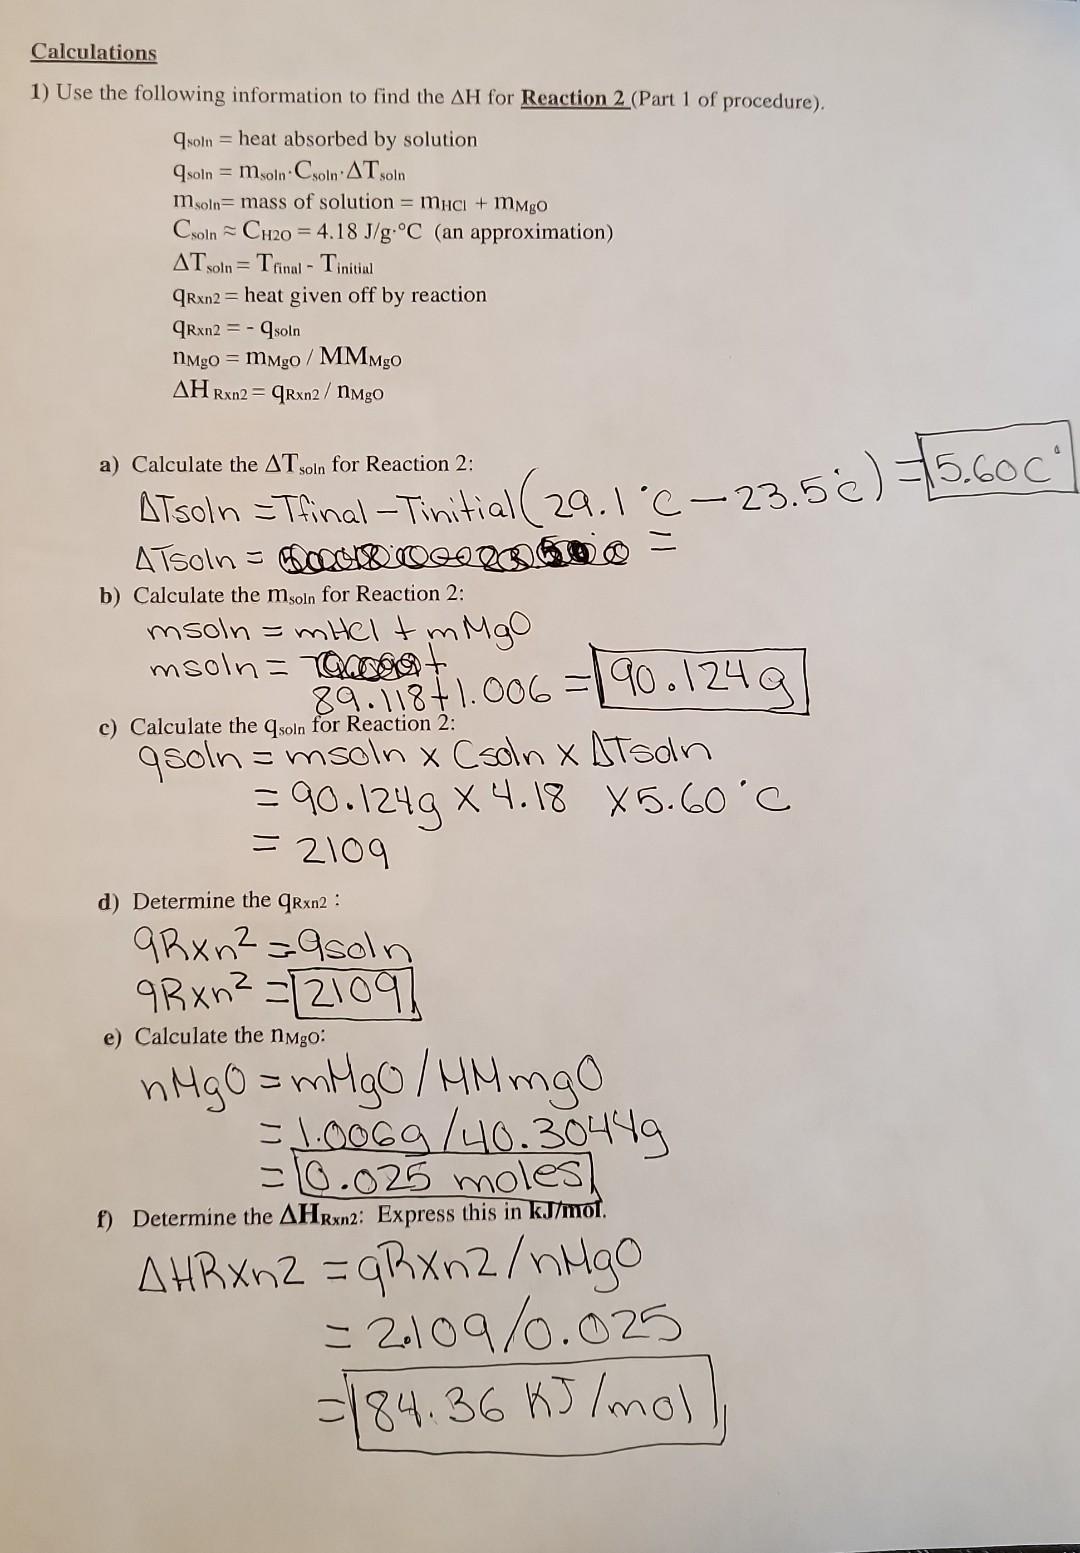 Calculations
1) Use the following information to find the ΔH for Reaction 2 (Part 1 of procedure).
qsoln = heat absorbed by solution
qsoln = msoln·Csoln·ΔTsoln
msoln= mass of solution = mHCl + mMgO
Csoln ≈ CH2O = 4.18 J/g·°C (an approximation)
ΔTsoln = Tfinal - Tinitial
qRxn2 = heat given off by reaction
qRxn2 = - qsoln
nMgO = mMgO / MMMgO
ΔH Rxn2 = qRxn2 / nMgO
a) Calculate the ΔTsoln for Reaction 2:
ΔTsoln = Tfinal - Tinitial (29.1°C - 23.5°C) = 5.60C°
ΔTsoln = =
b) Calculate the msoln for Reaction 2:
msoln = mHCl + mMgO
msoln = +
89.118+1.006 = 90.124g
c) Calculate the qsoln for Reaction 2:
qsoln = msoln x Csoln x ΔTsoln
= 90.124g x 4.18 x5.60°C
= 2109
d) Determine the qRxn2 :
qRxn2 =-qsoln
qRxn2 = 2109
e) Calculate the nMgO:
nMgO = mMgO/MMmgO
= 1.006g/40.3044g
= 0.025 moles
f) Determine the ΔHRxn2: Express this in kJ/mol.
ΔHRxn2 = qRxn2/nMgO
= 2.109/0.025
= 84.36 KJ/mol